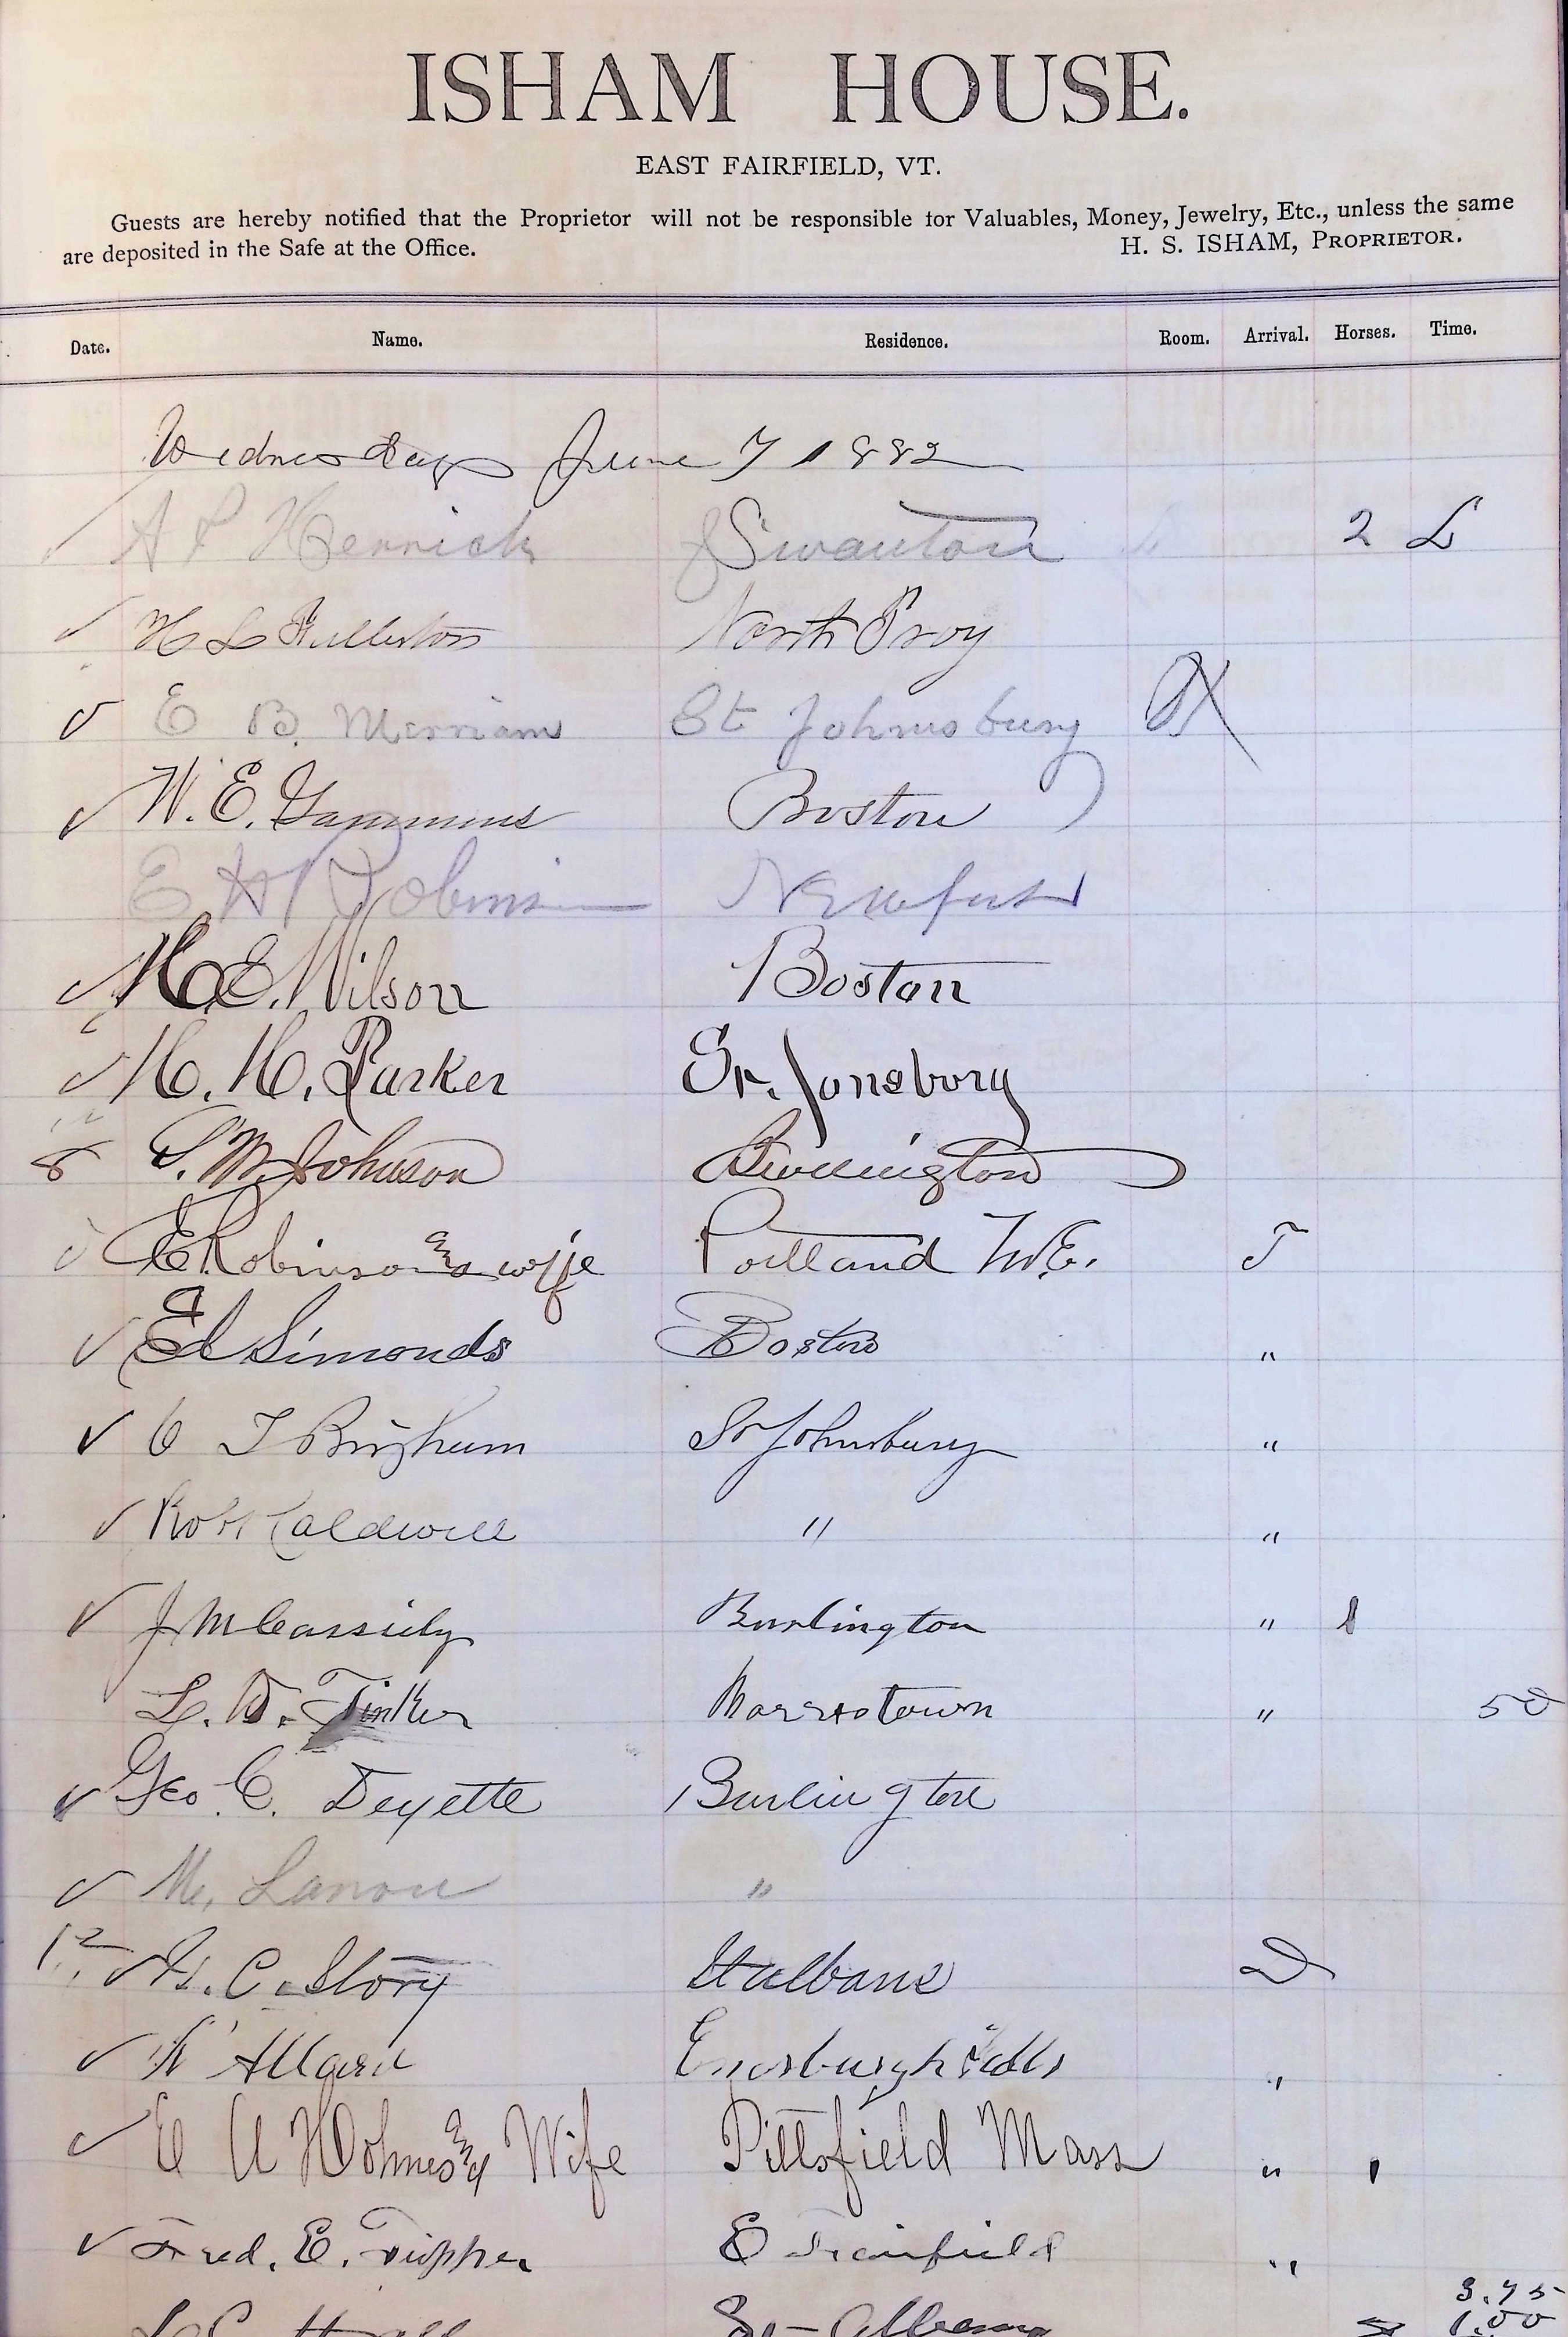 ISHAM HOUSE.
EAST FAIRFIELD, VT.
Guests are hereby notified that the Proprietor will not be responsible for Valuables, Money, Jewelry, Etc., unless the same
are deposited in the Safe at the Office. H. S. ISHAM, PROPRIETOR.
Date. Name. Residence. Room. Arrival. Horses. Time.
Wednesday June 7 1882
A P Herrick Swanton 2 L
H L Fullerton North Troy
E B. Merriam St Johnsbury
W. E. Gammons Boston
E H Robinson Newport
H. E. Wilson Boston
H. H. Parker St. Jonsbory
8 S. M. Johnson Burlington
E Robinson and wife Portland ME. T
Ed Simonds Boston "
C T Brigham St Johnsbury "
Robt Caldwell " "
J M Cassidy Burlington " 1
L. D. Tinker Morristown " 50
Geo. C. Deyette Burlington
M. Lanou "
12 C. Story St Albans D
Allard Enosburgh Falls "
E A Holmes and Wife Pittsfield Mass " 1
Fred. E. E Fairfield "
3.75
St Albans 1.00